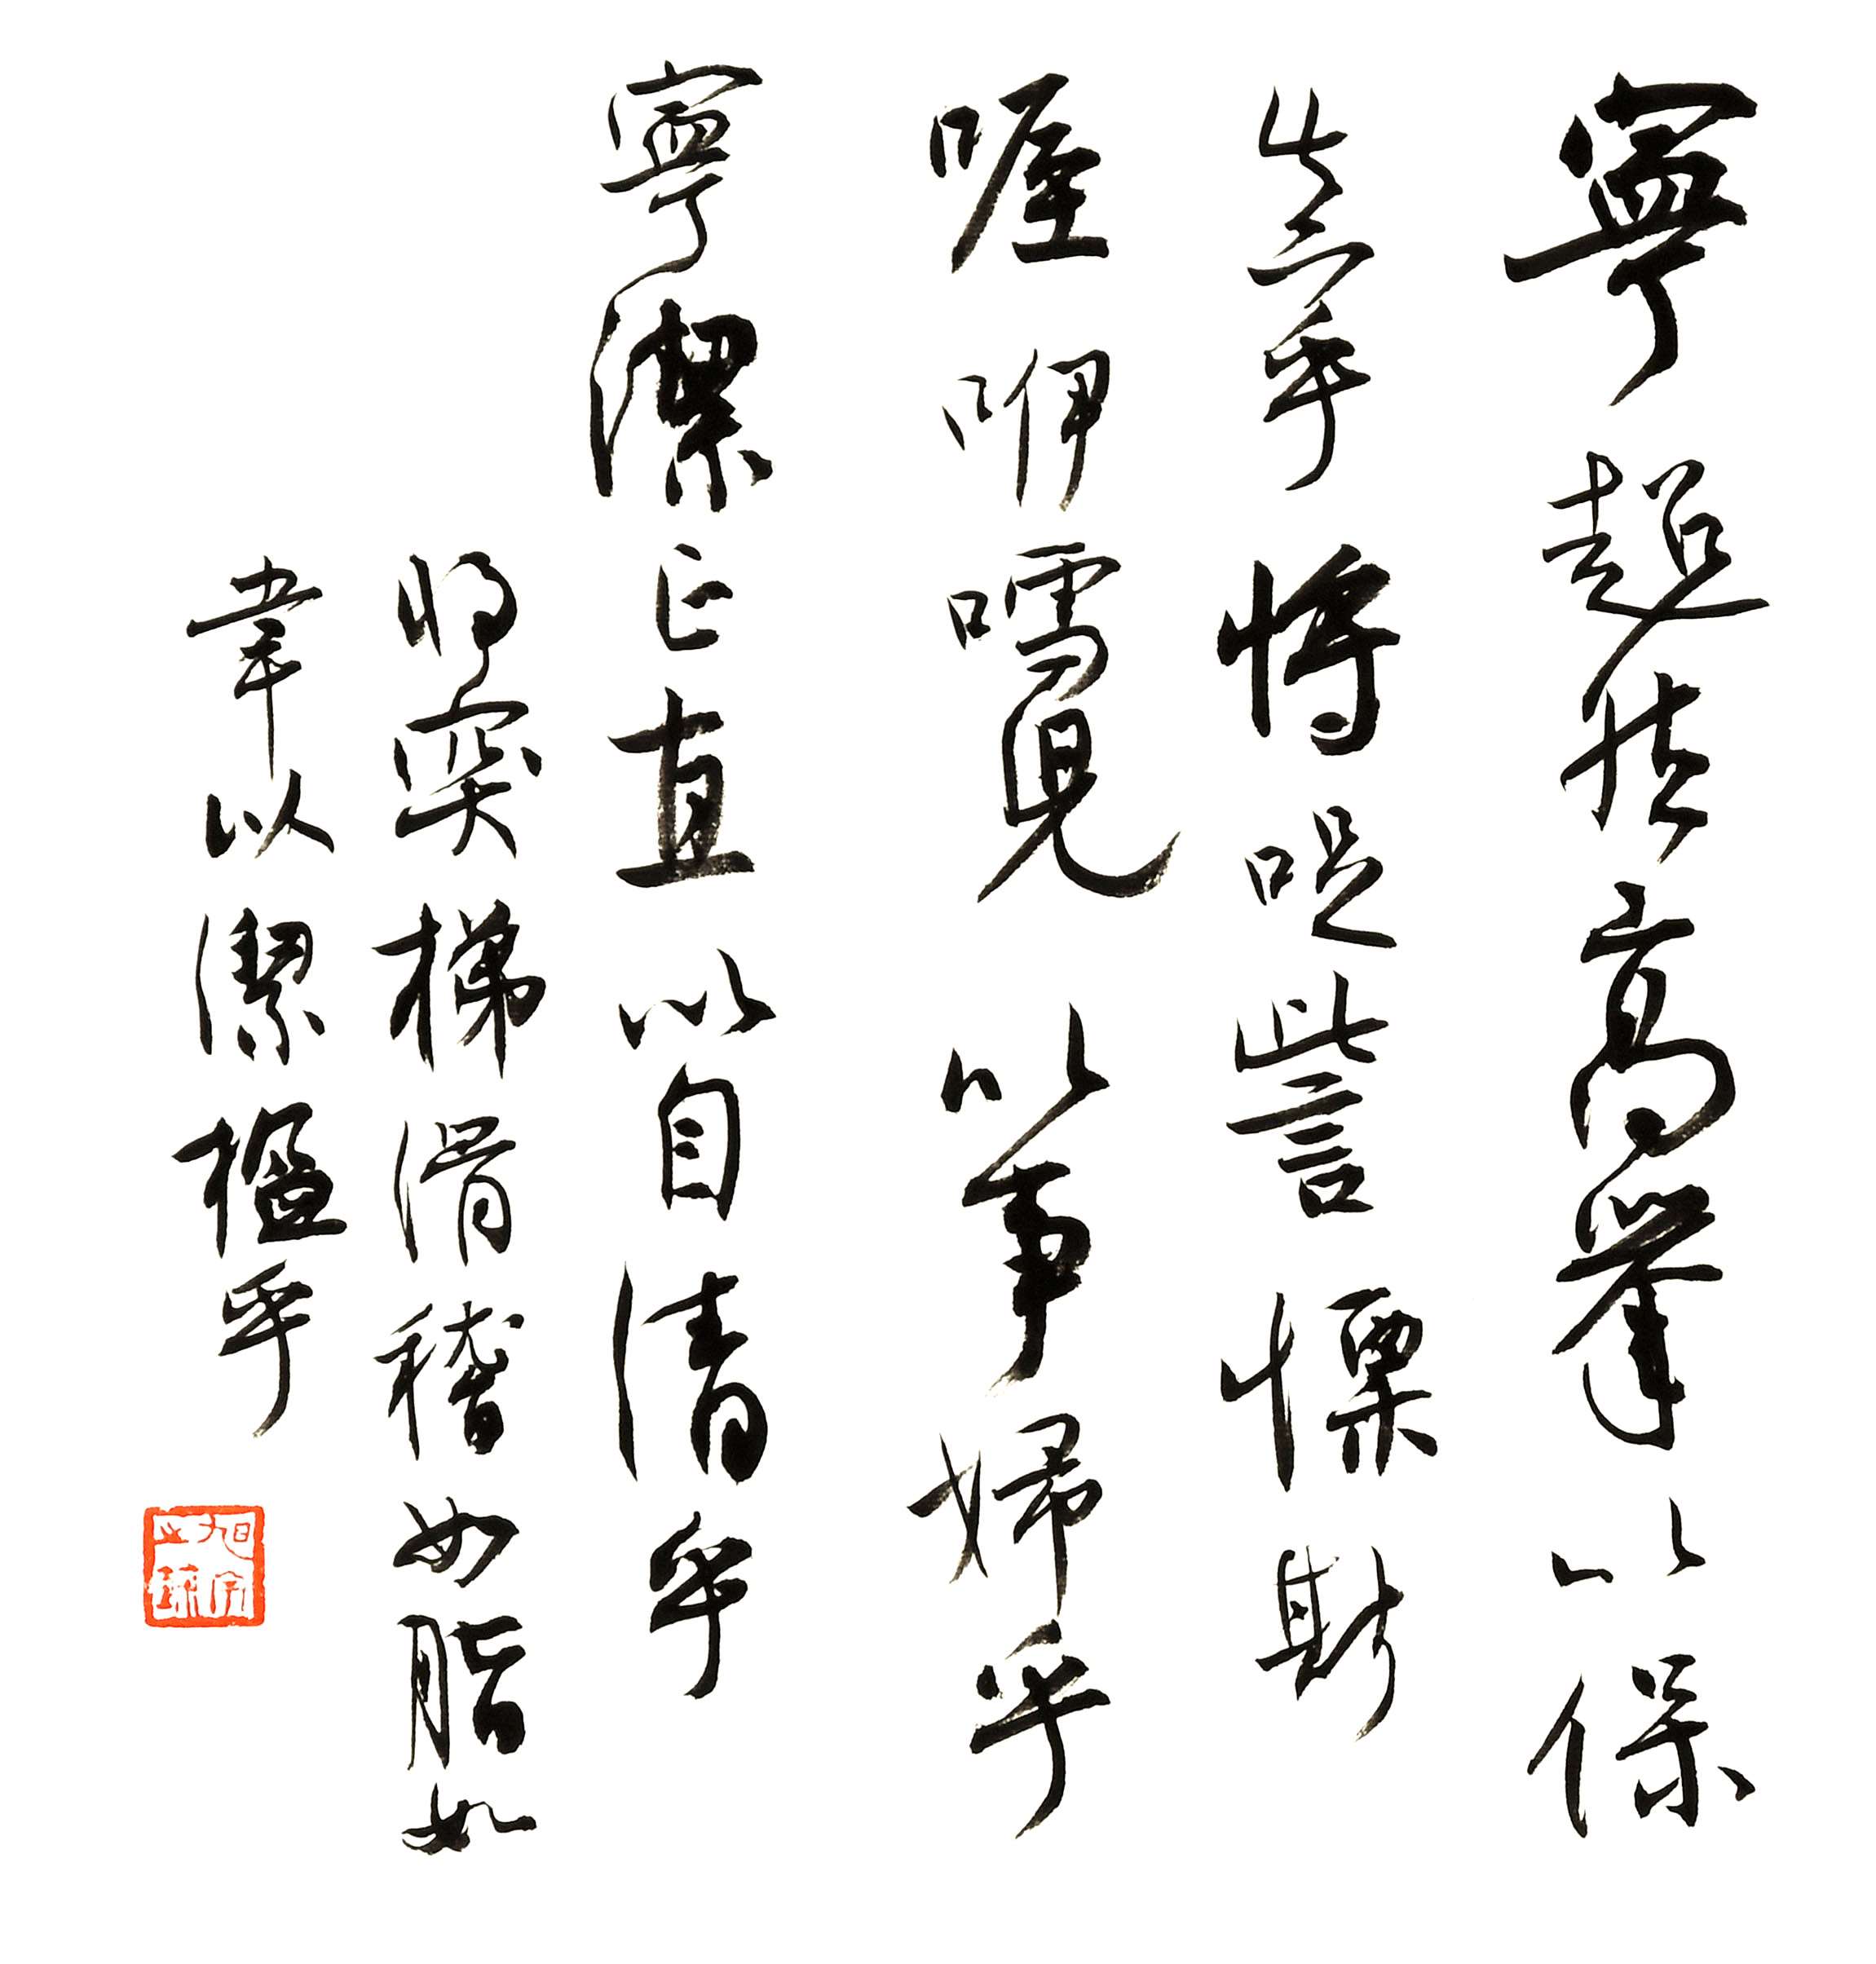 寧超然高舉以保
真乎將哫訾慄斯
喔咿嚅兒以事婦乎
寧潔正直以自清乎
將突梯滑稽如脂如
韋以潔楹乎